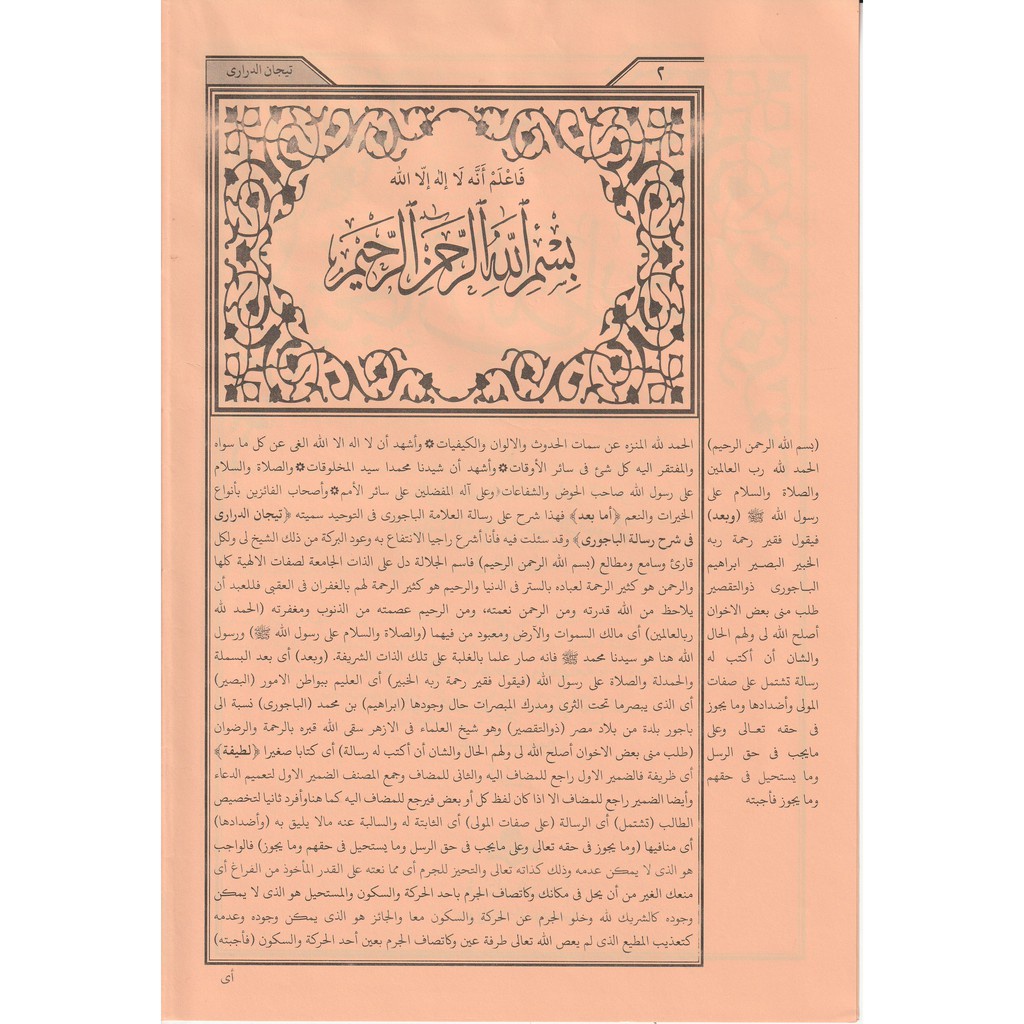 ٢
تيجان الدرارى
فَاعْلَمْ أَنَّه لَا إِلٰه إلّا الله
بِسْمِ اللهِ الرَّحْمٰنِ الرَّحِيمِ
(بسم الله الرحمن الرحيم)
الحمد لله رب العالمين
والصلاة والسلام على
رسول الله ﷺ (وبعد)
فيقول فقير رحمة ربه
الخبير البصير ابراهيم
الباجورى ذوالتقصير
طلب منى بعض الاخوان
أصلح الله لى ولهم الحال
والشان أن أكتب له
رسالة تشتمل على صفات
المولى وأضدادها وما يجوز
فى حقه تعالى وعلى
مايجب فى حق الرسل
وما يستحيل فى حقهم
وما يجوز فأجبته
الحمد لله المنزه عن سمات الحدوث والالوان والكيفيات۞ وأشهد أن لا اله الا الله الغى عن كل ما سواه
والمفتقر اليه كل شئ فى سائر الأوقات۞ وأشهد أن شيدنا محمدا سيد المخلوقات۞ والصلاة والسلام
على رسول الله صاحب الحوض والشفاعات۞ وعلى آله المفضلين على سائر الأمم۞ وأصحاب الفائزين بأنواع
الخيرات والنعم ﴿أما بعد﴾ فهذا شرح على رسالة العلامة الباجورى فى التوحيد سميته ﴿تيجان الدرارى
فى شرح رسالة الباجورى﴾ وقد سئلت فيه فأنا أشرع راجيا الانتفاع به وعود البركة من ذلك الشيخ لى ولكل
قارئ وسامع ومطالع (بسم الله الرحمن الرحيم) فاسم الجلالة دل على الذات الجامعة لصفات الالهية كلها
والرحمن هو كثير الرحمة لعباده بالستر فى الدنيا والرحيم هو كثير الرحمة لهم بالغفران فى العقبى فللعبد أن
يلاحظ من الله قدرته ومن الرحمن نعمته، ومن الرحيم عصمته من الذنوب ومغفرته (الحمد لله
ربالعالمين) أى مالك السموات والآرض ومعبود من فيهما (والصلاة والسلام على رسول الله ﷺ) ورسول
الله هنا هو سيدنا محمد ﷺ فانه صار علما بالغلبة على تلك الذات الشريفة. (وبعد) أى بعد البسملة
والحمدلة والصلاة على رسول الله (فيقول فقير رحمة ربه الخبير) أى العليم ببواطن الامور (البصير)
أى الذى يبصرما تحت الثرى ومدرك المبصرات حال وجودها (ابراهيم) بن محمد (الباجورى) نسبة الى
باجور بلدة من بلاد مصر (ذوالتقصير) وهو شيخ العلماء فى الازهر سقى الله قبره بالرحمة والرضوان
(طلب منى بعض الاخوان أصلح الله لى ولهم الحال والشان أن أكتب له رسالة) أى كتابا صغيرا ﴿لطيفة﴾
أى ظريفة فالضمير الاول راجع للمضاف اليه والثانى للمضاف وجمع المصنف الضمير الاول لتعميم الدعاء
وأيضا الضمير راجع للمضاف الا اذا كان لفظ كل أو بعض فيرجع للمضاف اليه كما هناوأفرد ثانيا لتخصيص
الطالب (تشتمل) أى الرسالة (على صفات المولى) أى الثابتة له والسالبة عنه مالا يليق به (وأضدادها)
أى منافيها (وما يجوز فى حقه تعالى وعلى مايجب فى حق الرسل وما يستحيل فى حقهم وما يجوز) فالواجب
هو الذى لا يمكن عدمه وذلك كذاته تعالى والتحيز للجرم أى مما نعته على القدر المأخوذ من الفراغ أى
منعك الغير من أن يحل فى مكانك وكاتصاف الجرم باحد الحركة والسكون والمستحيل هو الذى لا يمكن
وجوده كالشريك لله وخلو الجرم عن الحركة والسكون معا والجائز هو الذى يمكن وجوده وعدمه
كتعذيب المطيع الذى لم يعص الله تعالى طرفة عين وكاتصاف الجرم بعين أحد الحركة والسكون (فأجبته)
أى